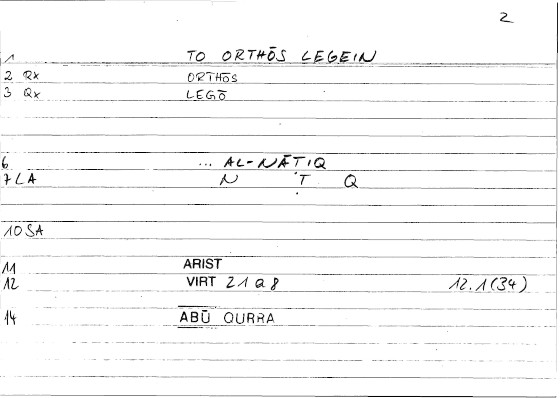 2
1 TO ORTHŌS LEGEIN
2 Qx ORTHŌS
3 Qx LEGŌ
6 ... AL-NĀṬIQ
7 LA N Ṭ Q
10 SA
11 ARIST
12 VIRT 21 a 8 12.1(34)
14 ABŪ QURRA